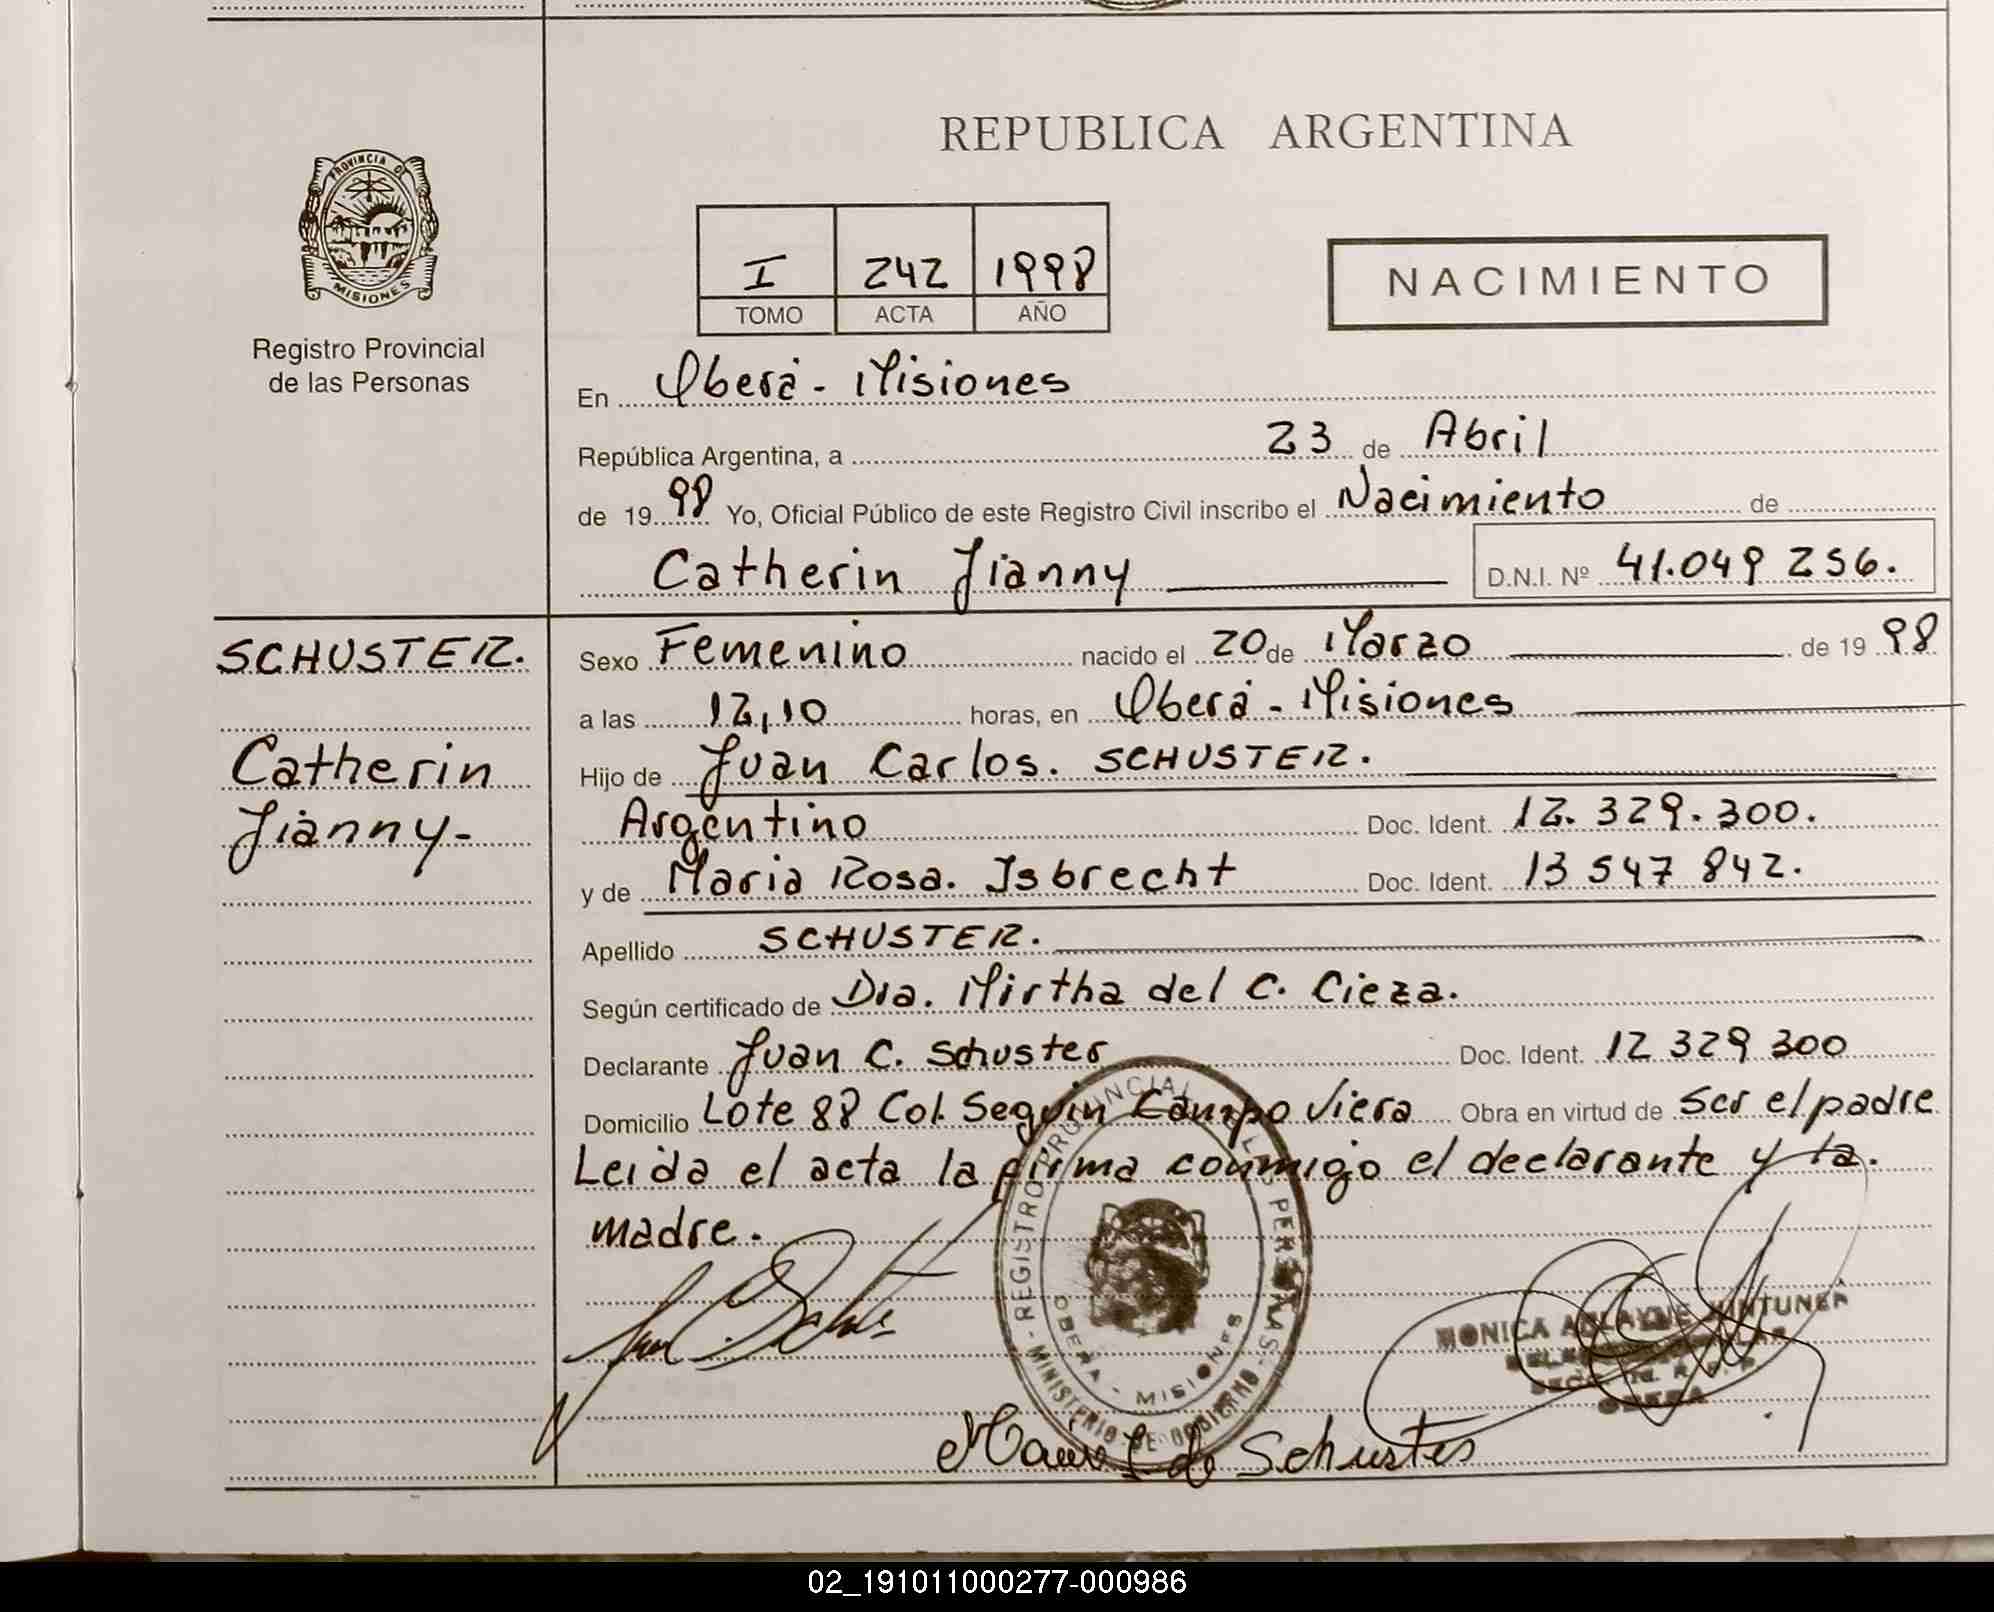 REPUBLICA ARGENTINA
PROVINCIA DE
MISIONES
Registro Provincial
de las Personas
I 242 1998
TOMO ACTA AÑO
NACIMIENTO
En Oberá - Misiones
República Argentina, a 23 de Abril
de 1998 Yo, Oficial Público de este Registro Civil inscribo el Nacimiento de
Catherin Jianny D.N.I. Nº 41.049 256.
SCHUSTER.
Catherin
Jianny-
Sexo Femenino nacido el 20 de Marzo de 1998
a las 12,10 horas, en Oberá - Misiones
Hijo de Juan Carlos. SCHUSTER.
Argentino Doc. Ident. 12.329.300.
y de Maria Rosa. Isbrecht Doc. Ident. 13 547 842.
Apellido SCHUSTER.
Según certificado de Dra. Mirtha del C. Cieza.
Declarante Juan C. Schuster Doc. Ident. 12 329 300
Domicilio Lote 88 Col. Seguin Campo Viera Obra en virtud de ser el padre
Leida el acta la firma conmigo el declarante y la.
madre.
REGISTRO PROVINCIAL DE LAS PERSONAS
OBERA - MISIONES
MINISTERIO DE GOBIERNO
MONICA
OBERA
Maria I de Schuster
02_191011000277-000986